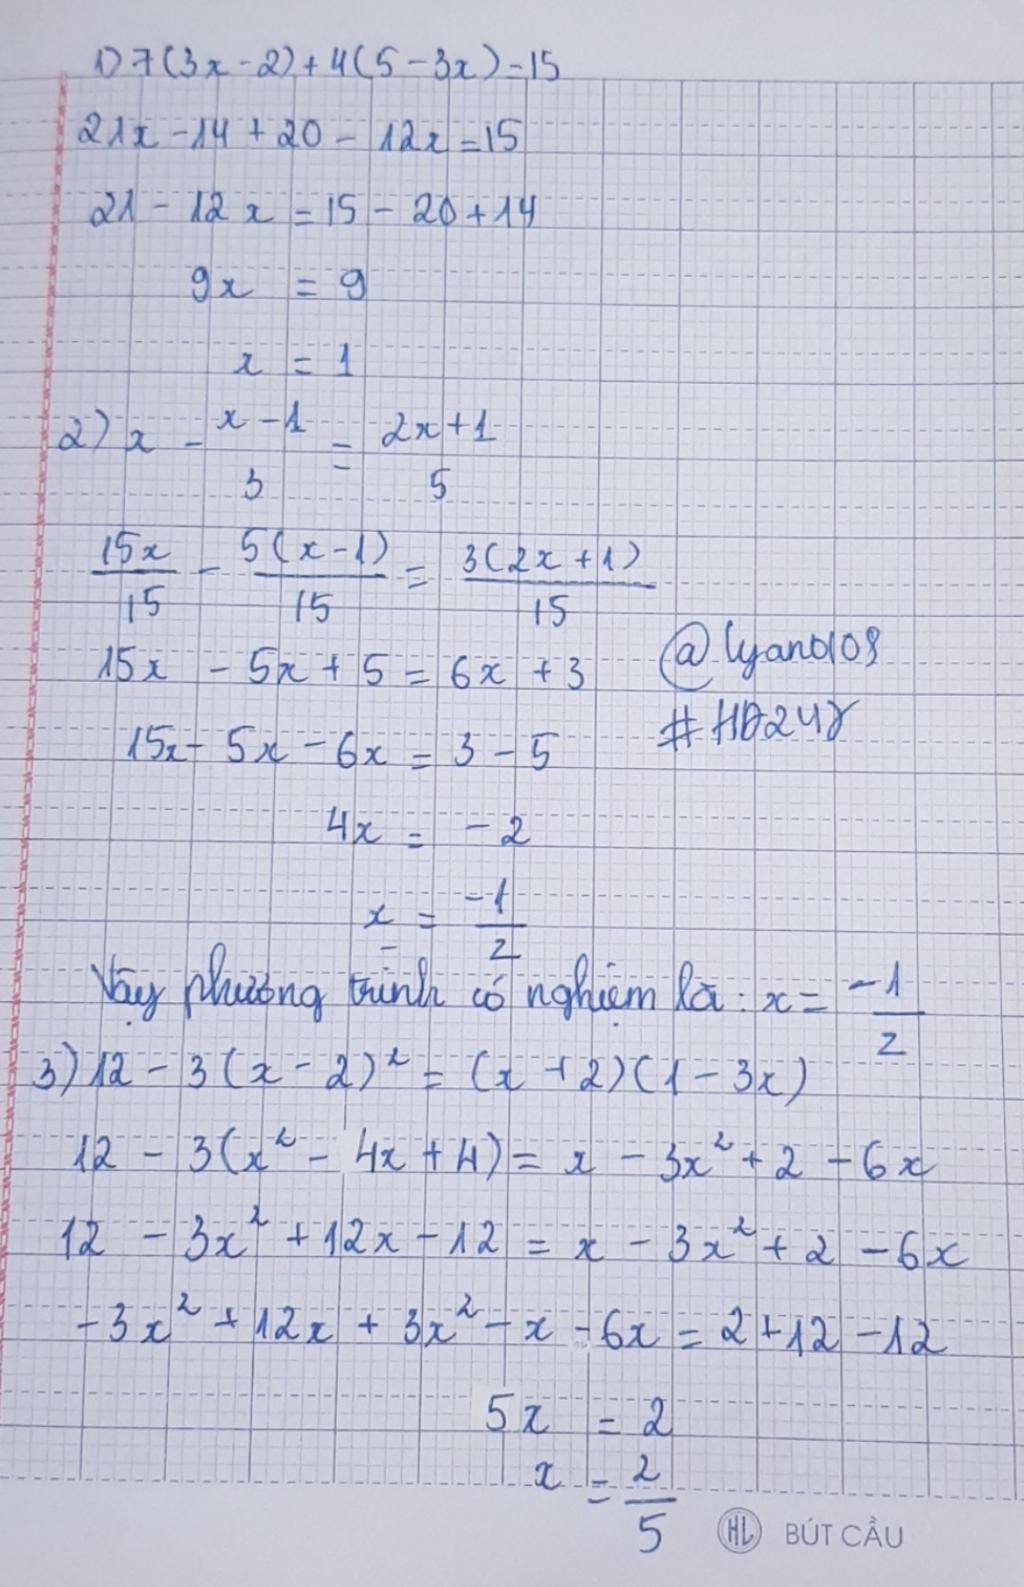 1) 7(3x - 2) + 4(5 - 3x) = 15
21x - 14 + 20 - 12x = 15
21 - 12x = 15 - 20 + 14
9x = 9
x = 1
2) x - (x - 1)/3 = (2x + 1)/5
15x/15 - 5(x - 1)/15 = 3(2x + 1)/15
15x - 5x + 5 = 6x + 3
@lyan0108
15x - 5x - 6x = 3 - 5
#HD247
4x = -2
x = -1/2
Vậy phương trình có nghiệm là: x = -1/2
3) 12 - 3(x - 2)² = (x + 2)(1 - 3x)
12 - 3(x² - 4x + 4) = x - 3x² + 2 - 6x
12 - 3x² + 12x - 12 = x - 3x² + 2 - 6x
-3x² + 12x + 3x² - x - 6x = 2 + 12 - 12
5x = 2
x = 2/5
HL BÚT CẦU